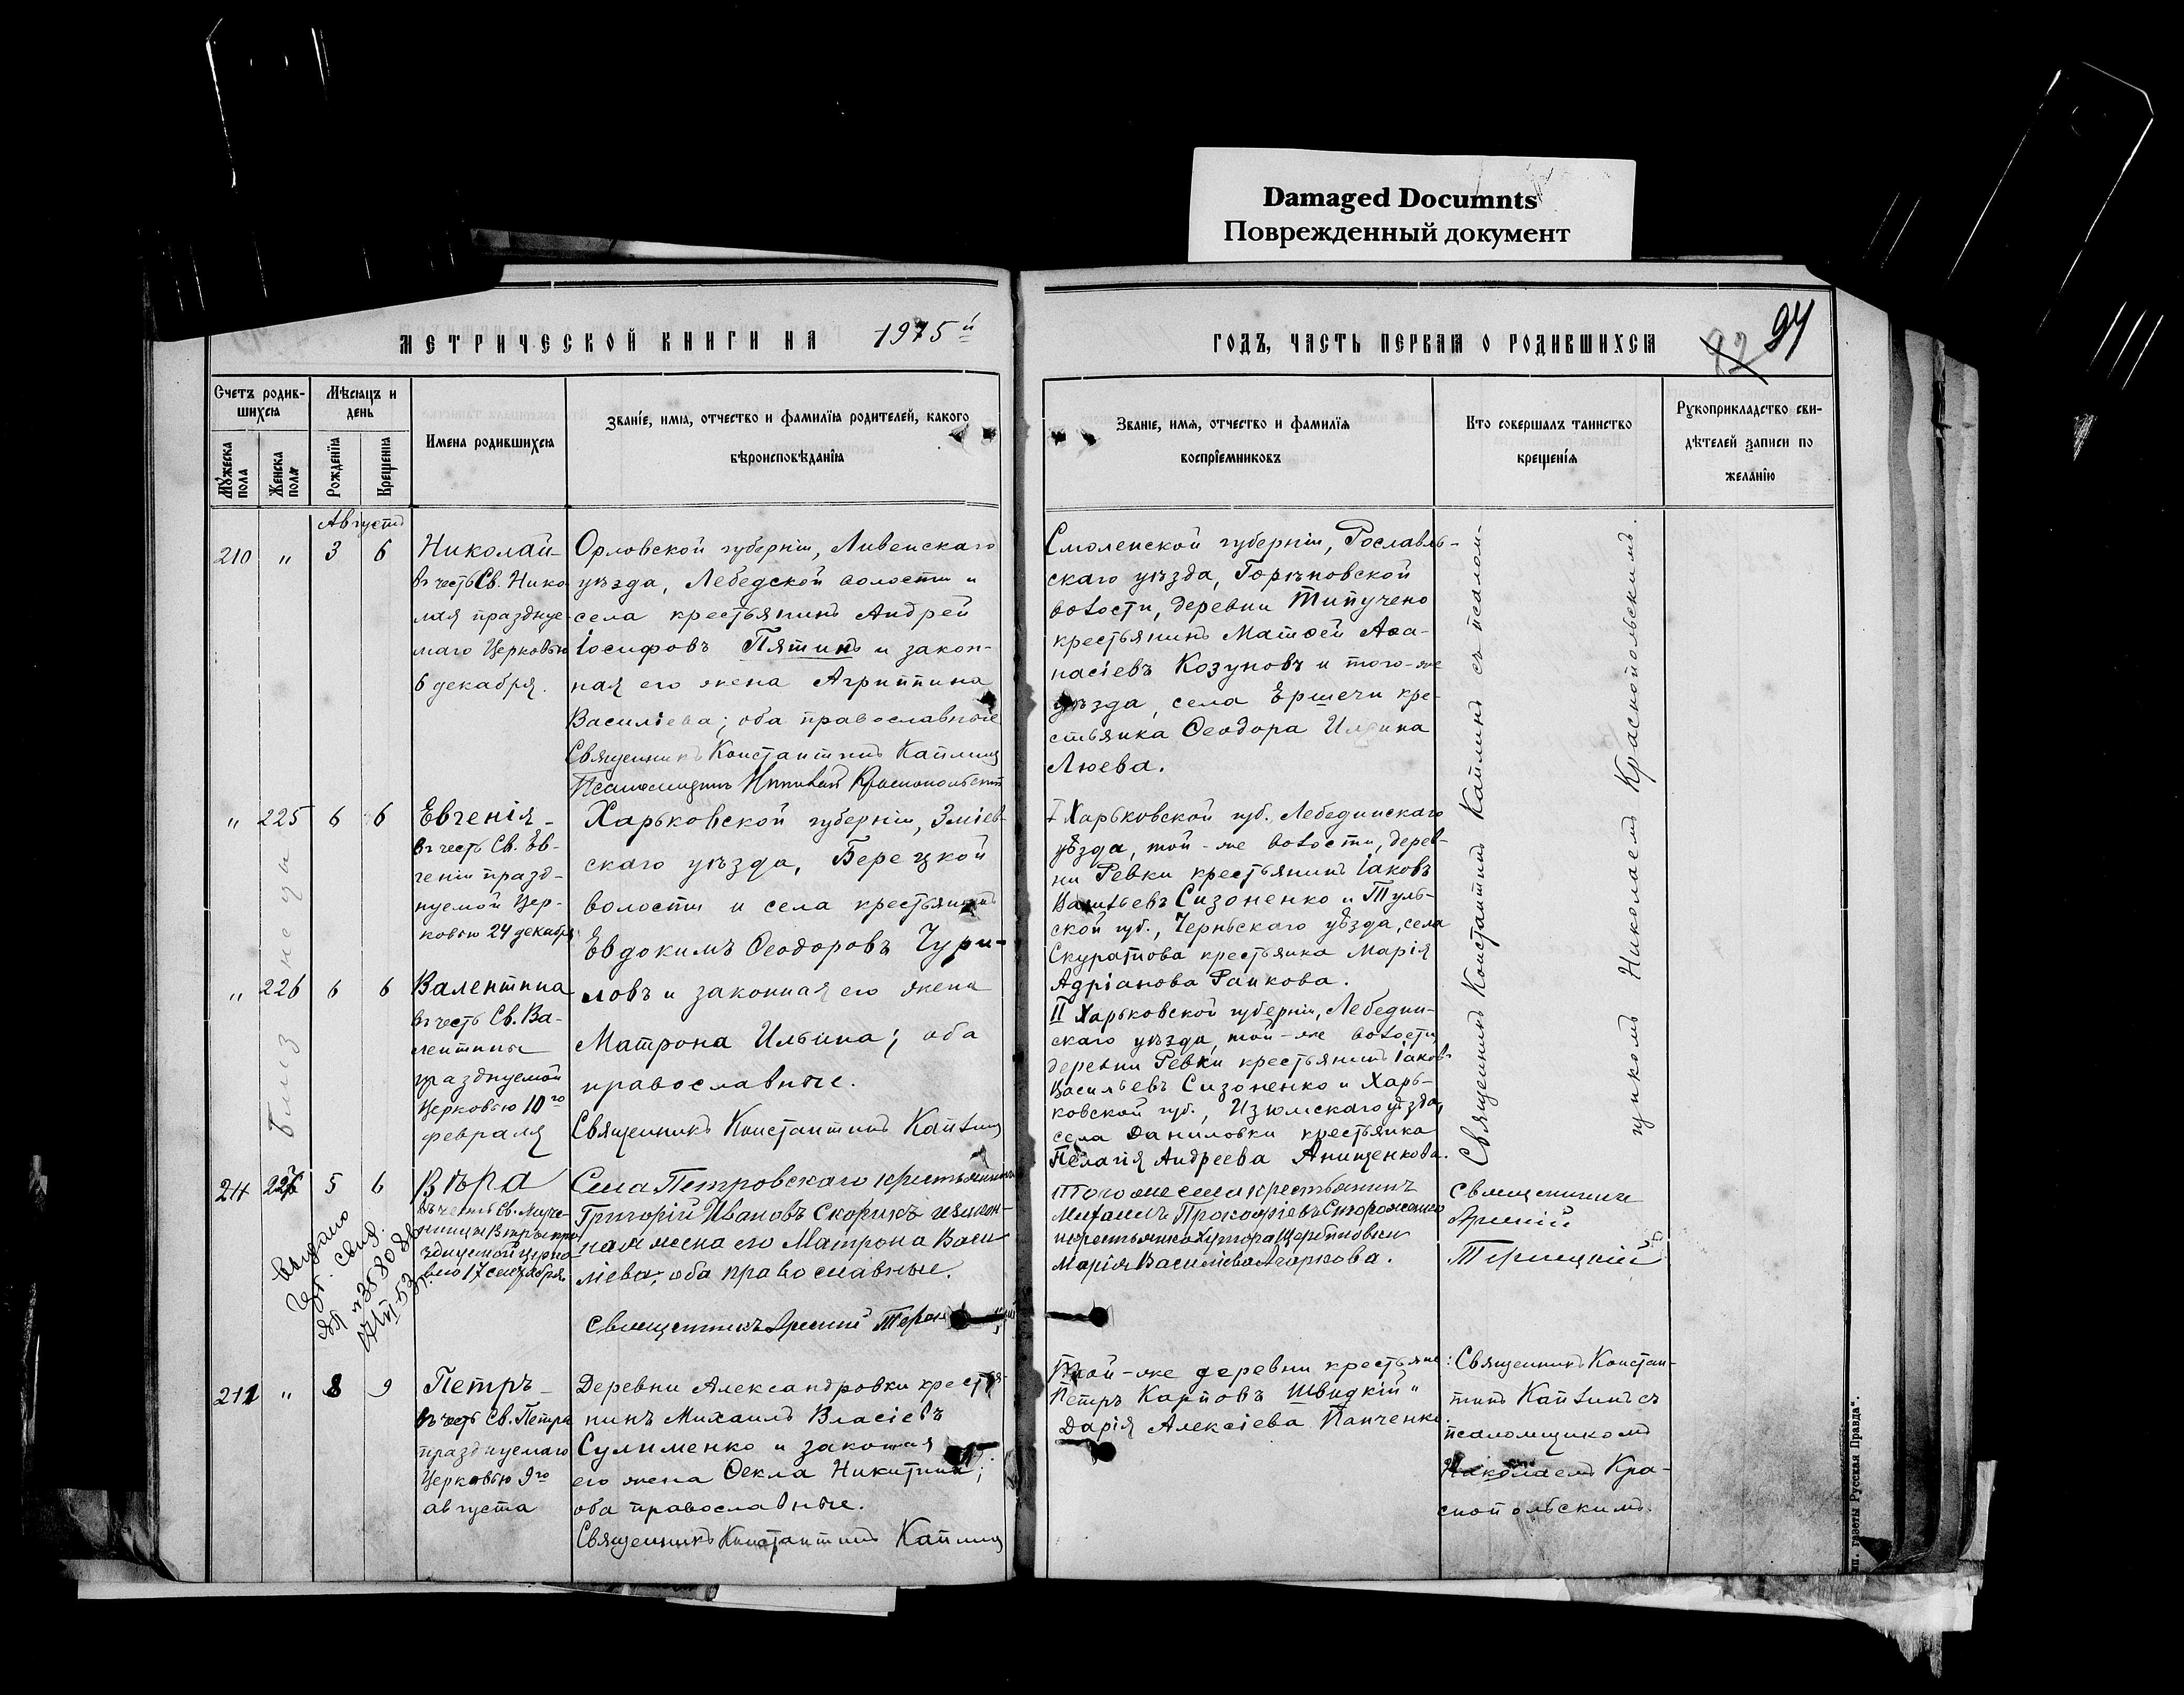 Damaged Documnts
Поврежденный документ
МЕТРИЧЕСКОЙ КНИГИ НА 1915й
ГОДЪ, ЧАСТЬ ПЕРВАЯ О РОДИВШИХСЯ
92 94
Счетъ родив-
шихся
Мужеска пола
Женска пола
Мѣсяцъ и
день
Рожденія
Крещенія
Имена родившихся
Званіе, имя, отчество и фамилія родителей, какого
вѣроисповѣданія
Званіе, имя, отчество и фамилія
воспріемниковъ
Кто совершалъ таинство
крещенія
Рукоприкладство сви-
дѣтелей записи по
желанію
Августъ
210 " 3 6
Николай
въ честь Св. Нико
лая празднуе-
маго Церковью
6 декабря.
Орловской губерніи, Ливенскаго
уѣзда, Лебедской волости и
села крестьянинъ Андрей
Іосифовъ Пятинъ и закон-
ная его жена Агриппина
Васильева; оба православные
Священникъ Константинъ Каплинъ
Псаломщикъ Николай Краснопольскій
Смоленской губерніи, Рославль-
скаго уѣзда,
волости, деревни
крестьянинъ Матѳей Аѳа-
насіевъ Козуновъ и того-же
уѣзда, села Ершечи кре-
стьянка Ѳеодора Ильина
Люева.
" 225 6 6
Евгенія
въ честь Св. Ев-
геніи празд-
нуемой Цер-
ковью 24 декабря
Харьковской губерніи, Зміев-
скаго уѣзда, Берецкой
волости и села крестьянинъ
Евдокимъ Ѳеодоровъ Чури-
ловъ и законная его жена
Матрона Ильина; оба
православные.
Священникъ Константинъ Каплинъ
I Харьковской губ. Лебединскаго
уѣзда, той-же волости, дерев-
ни Ревки крестьянинъ Іаковъ
Васильевъ Сизоненко и Туль-
ской губ., Черньскаго уѣзда, села
Скуратова крестьянка Марія
Адріанова Рапкова.
Близнецы
" 226 6 6
Валентина
въ честь Св. Ва-
лентины
празднуемой
Церковью 10го
февраля
II Харьковской губерніи, Лебедин-
скаго уѣзда, той-же волости
деревни Ревки крестьянинъ Іаковъ
Васильевъ Сизоненко и Харь-
ковской губ., Изюмскаго уѣзда,
села Даниловки крестьянка
Пелагія Андреева Анищенкова.
Священникъ Константинъ Каплинъ съ псалом-
щикомъ Николаемъ Краснопольскимъ.
227 5 6
Вѣра
въ честь Св. Муче-
ницы Вѣры пра
зднуемой церко-
вью 17 сентября.
Села Петровскаго крестьянинъ
Григорій Ивановъ Скорикъ и закон-
ная жена его Матрона Васи
ліева; оба православные.
Священникъ Арсеній
Того же села крестьянинъ
Михаилъ Прокофіевъ Стороженко
и крестьянка хутора Щербиновки
Марія Василіева
Священникъ
Арсеній
выдано
212 " 8 9
Петръ
въ честь Св. Петра
празднуемаго
Церковью 9го
августа
Деревни Александровки крестья-
нинъ Михаилъ Власіевъ
Сулименко и законная
его жена Ѳекла Никитина;
оба православные.
Священникъ Константинъ Каплинъ
Той-же деревни крестьяне:
Петръ Карповъ Швидкій и
Дарія Алексіева Панченко.
Священникъ Констан-
тинъ Каплинъ съ
псаломщикомъ
Николаемъ Кра-
снопольскимъ.
тип. газеты Русская Правда".